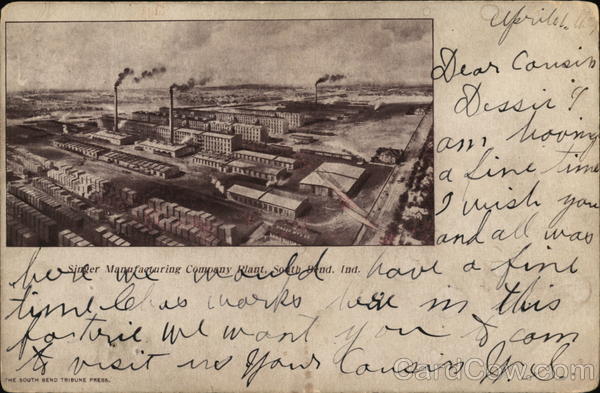 April
Dear Cousin
Dessie I
am having
a fine time
I wish you
and all was
Singer Manufacturing Company Plant, South Bend, Ind.
here we would have a fine
time Chas works here in this
factrie we want you to com
to visit us Your Cousin
THE SOUTH BEND TRIBUNE PRESS.
CardCow.com